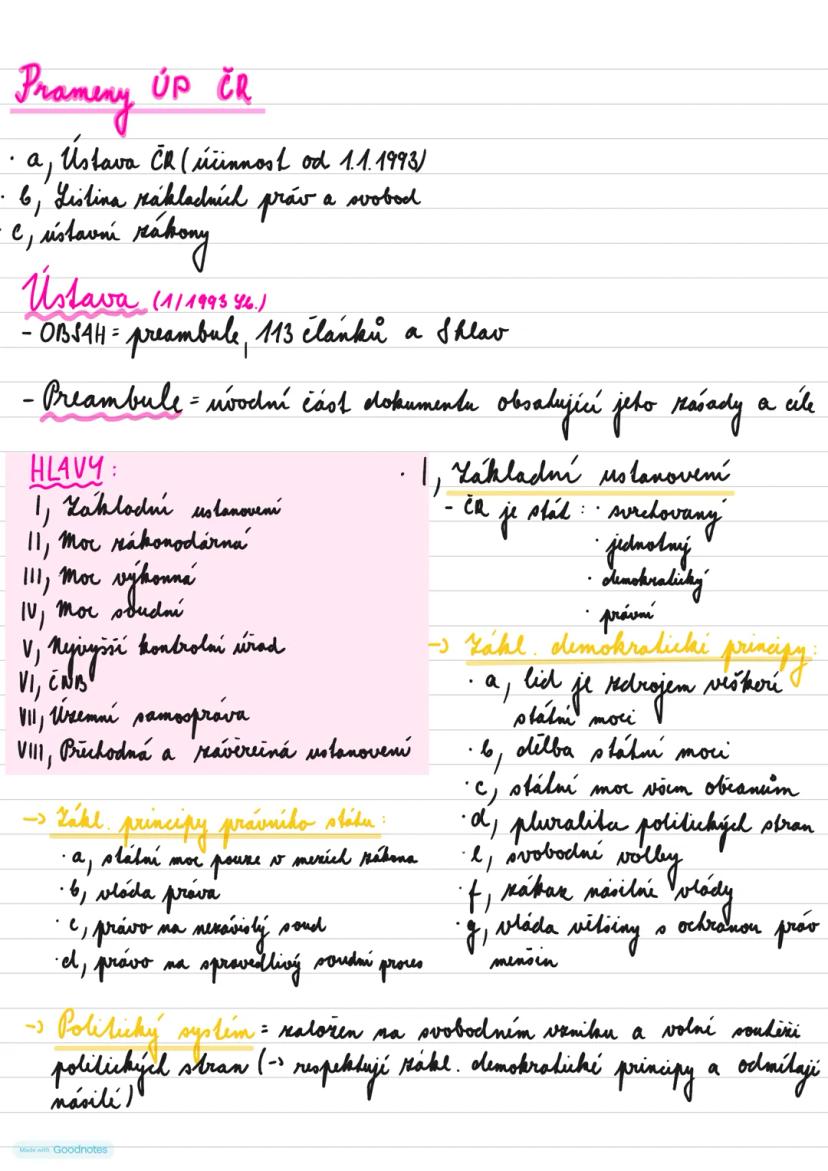 Prameny ÚP ČR
· a, Ústava ČR (účinnost od 1.1.1993)
· b, Listina základních práv a svobod
· c, ústavní zákony
Ústava (1/1993 Sb.)
- OBSAH = preambule, 113 článků a 8 hlav
- Preambule = úvodní část dokumentu obsahující jeho zásady a cíle
HLAVY:
I, Základní ustanovení
II, Moc zákonodárná
III, Moc výkonná
IV, Moc soudní
V, Nejvyšší kontrolní úřad
VI, ČNB
VII, Územní samospráva
VIII, Přechodná a závěrečná ustanovení
· I, Základní ustanovení
- ČR je stát: · svrchovaný
· jednotný
· demokratický
· právní
-> Zákl. demokratické principy:
· a, lid je zdrojem veškeré
státní moci
· b, dělba státní moci
· c, státní moc všem občanům
· d, pluralita politických stran
· e, svobodné volby
· f, zákaz násilné vlády
· g, vláda většiny s ochranou práv
menšin
-> Zákl. principy právního státu:
· a, státní moc pouze v mezích zákona
· b, vláda práva
· c, právo na nezávislý soud
· d, právo na spravedlivý soudní proces
-> Politický systém = založen na svobodném vzniku a volné soutěži
politických stran (-> respektují zákl. demokratické principy a odmítají
násilí)
Made with Goodnotes